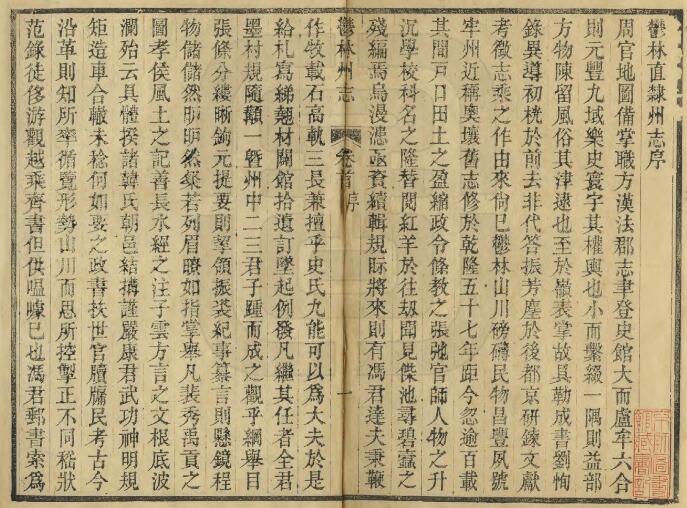 鬱林直隸州志序
周官地圖備掌職方漢法郡志聿登史館大而盧牟六合
則元豐九域樂史寰宇其權輿也小而繫綴一隅則益部
方物陳留風俗其津逮也至於嶽表掌故具勒成書劉恂
錄異導初桄於前去非代答振芳塵於後都京研鍊文獻
考徵志乘之作由來尚已鬱林山川磅礴民物昌豐夙號
牢州近稱奧壤舊志修於乾隆五十七年距今忽逾百載
其閒戸口田土之盈縮政令條敎之張弛官師人物之升
沉學校科名之隆替閱紅羊於往劫聞見傑池尋碧蠹之
殘編焉烏漫漶亟資續輯規眎將來則有馮君達夫秉鞭
作牧載石高軌三長兼擅乎史氏九能可以爲大夫於是
給札寫綈翹材闢館拾遺訂墜起例發凡繼其任者全君
墨村規隨顓一曁州中二三君子踵而成之觀乎綱舉目
張條分縷晰鉤元提要則挈領振裘紀事纂言則懸鏡程
物儲儲然昈昈然粲若列眉瞭如指掌舉凡裴秀禹貢之
圖孝侯風土之記善長水經之注子雲方言之文根底波
瀾殆云具體揆諸韓氏朝邑結搆謹嚴康君武功神明規
矩造車合轍未稔何如要之政書扶世官牘牖民考古今
沿革則知所率循覽形勢山川而思所控掣正不同嵇狀
范錄徒侈游觀越乘齊書但供嗢噱已也馮君郵書索爲
鬱林州志
卷首 序
一